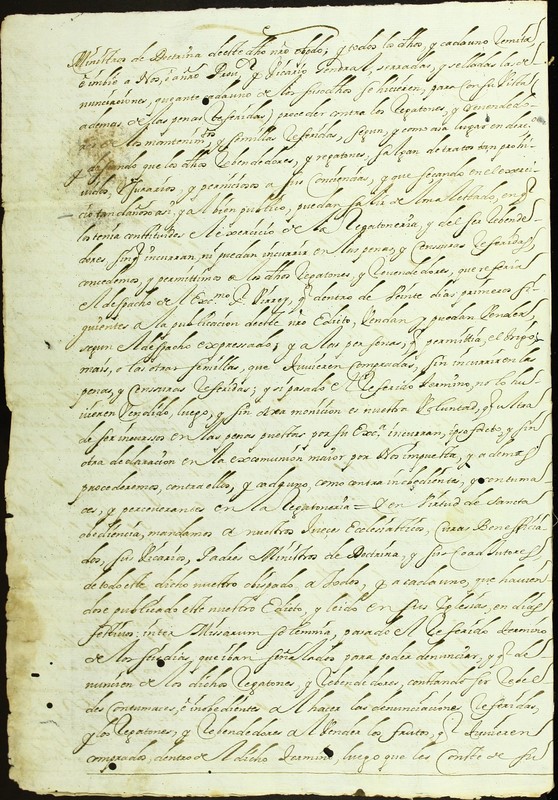 Ministros de Doctrina deeste dho nro obpdo; y todos los dhos, y cada uno remita
ô imbie a Nos, ô a nro Prov.r y Vicario General, serradas, y selladas las de
nunciaciones, que ante cada uno de los susodhos se hicieren, para con su vista
ademas de las penas referidas) proceder contra los regatones, y
a los mantenim.tos y semillas referidas, segun, y como aia lugar en dere
y deseando que los dhos Rebendedores, y regatones, salgan de trato tan prohi
vido, Usurario, y pernicioso a sus Conciencias, y que sesando en el exerci
cio tan dañoso asi, y al bien publico, puedan salir de alma
los tenia constituidos el exercicio de la Regatoneria, y del ser Rebende
dores sin q incurran, ni puedan incurrir en las penas, y Censuras referidas
concedemos, y permitimos a los dhos Regatones, y Revendedores, que refería
el despacho de el Exc.mo S.r Virrey, q dentro de Veinte dias primeros si
guientes a la publicacion deeste nro Edicto, Vendan y puedan Vender,
segun el despacho expressado, y a las personas, q permitia, el trigo,
mais, o las otras semillas, que tuvieren compradas, sin incurrir en las
penas, y Censuras referidas; y si pasado el referido termino, no lo hu
vieren Vendido, luego, y sin otra monicion es nuestra Voluntad, q ultra
de ser incursos en las penas puestas por su Exc.a incurran, ipso facto, y sin
otra declaracion en la excomunion maior por Nos impuesta, y ademas
procederemos, contra ellos, y cada uno, como contra inobedientes, y contuma
ces, y perceverantes en la Regatoneria = Y en Virtud de sancta
obediencia, mandamos a nuestros Jueces Ecclesiasticos, Curas Beneficia
dos, sus Vicarios, Padres Ministros de Doctrina, y sus Coadjutores
de todo este dicho nuestro obispado a todos, y a cada uno, que havien
dose publicado este nuestro Edicto, y leido en sus Iglesias, en dias
festivos: intra Missarum solemnia, pasado el referido termino
de los seis dias, que iban señalados para poder denunciar, y q de
nuncien de los dichos Regatones, y Rebendedores, constando ser rebel
des contumaces, é inobedientes a hacer las denunciaciones referidas,
y los Regatones, y Rebendedores a Vender los frutos, q tuvieren
comprados, dentro de el dicho termino, luego que les conste de su